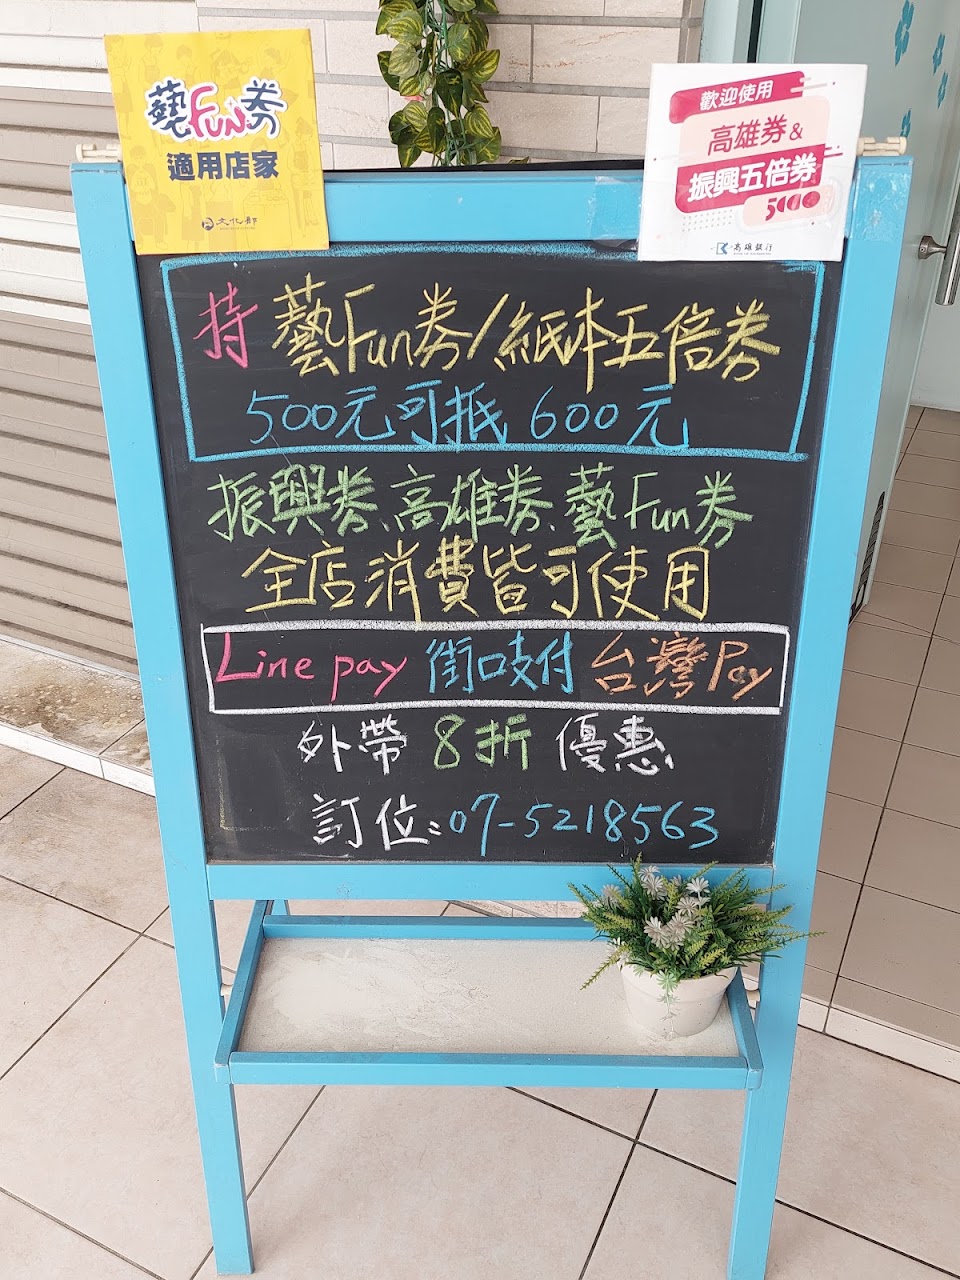 藝FUN券
適用店家
文化部
歡迎使用
高雄券&
振興五倍券
5000
高雄銀行
持藝Fun券/紙本五倍券
500元可抵600元
振興券、高雄券、藝Fun券
全店消費皆可使用
Line pay 街口支付 台灣Pay
外帶8折優惠
訂位:07-5218563